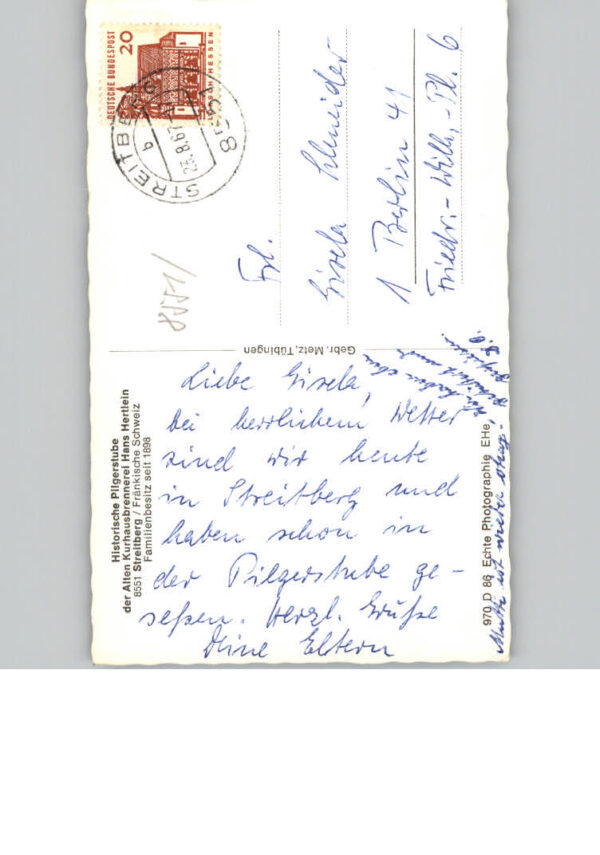 DEUTSCHE BUNDESPOST
20
STREITBERG
b
23.8.67
8551
Frl.
Gisela Schneider
1 Berlin 41
Friedr.-Wilh.-Pl. 6
8551/
Gebr. Metz, Tübingen
Historische Pilgerstube
der Alten Kurhausbrennerei Hans Hertlein
8551 Streitberg / Fränkische Schweiz
Familienbesitz seit 1898
Liebe Gisela,
bei herrlichem Wetter
sind wir heute
in Streitberg und
haben schon in
der Pilgerstube ge-
seßen. Herzl. Grüße
Deine Eltern
970 D 86 Echte Photographie EHe
Mutti ist wieder okay!